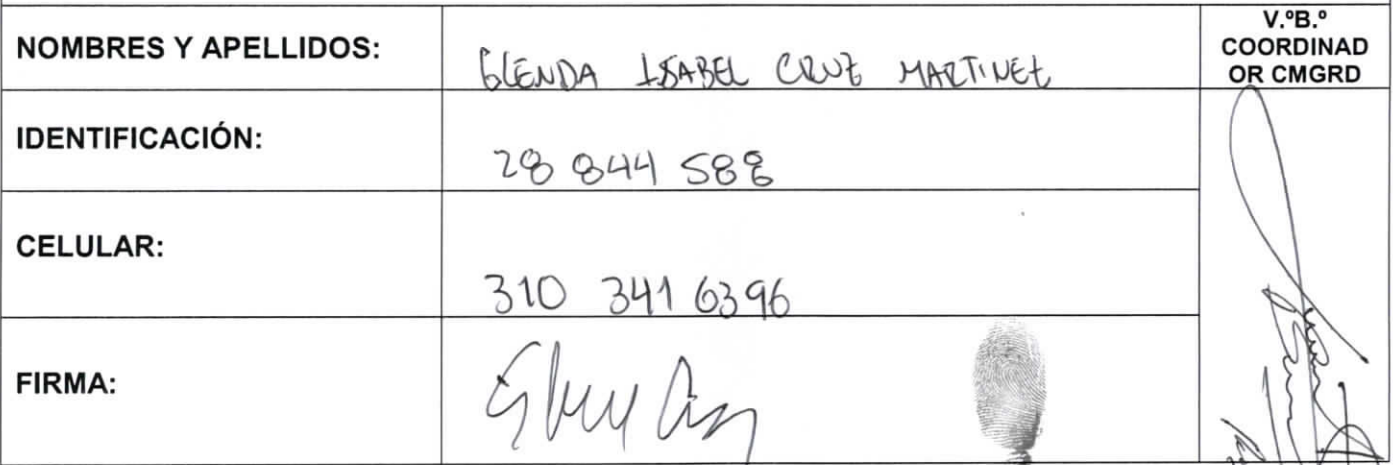 NOMBRES Y APELLIDOS:
GLENDA ISABEL CRUZ MARTINEZ
V.ºB.º
COORDINAD
OR CMGRD
IDENTIFICACIÓN:
28 844 588
CELULAR:
310 341 6396
FIRMA: